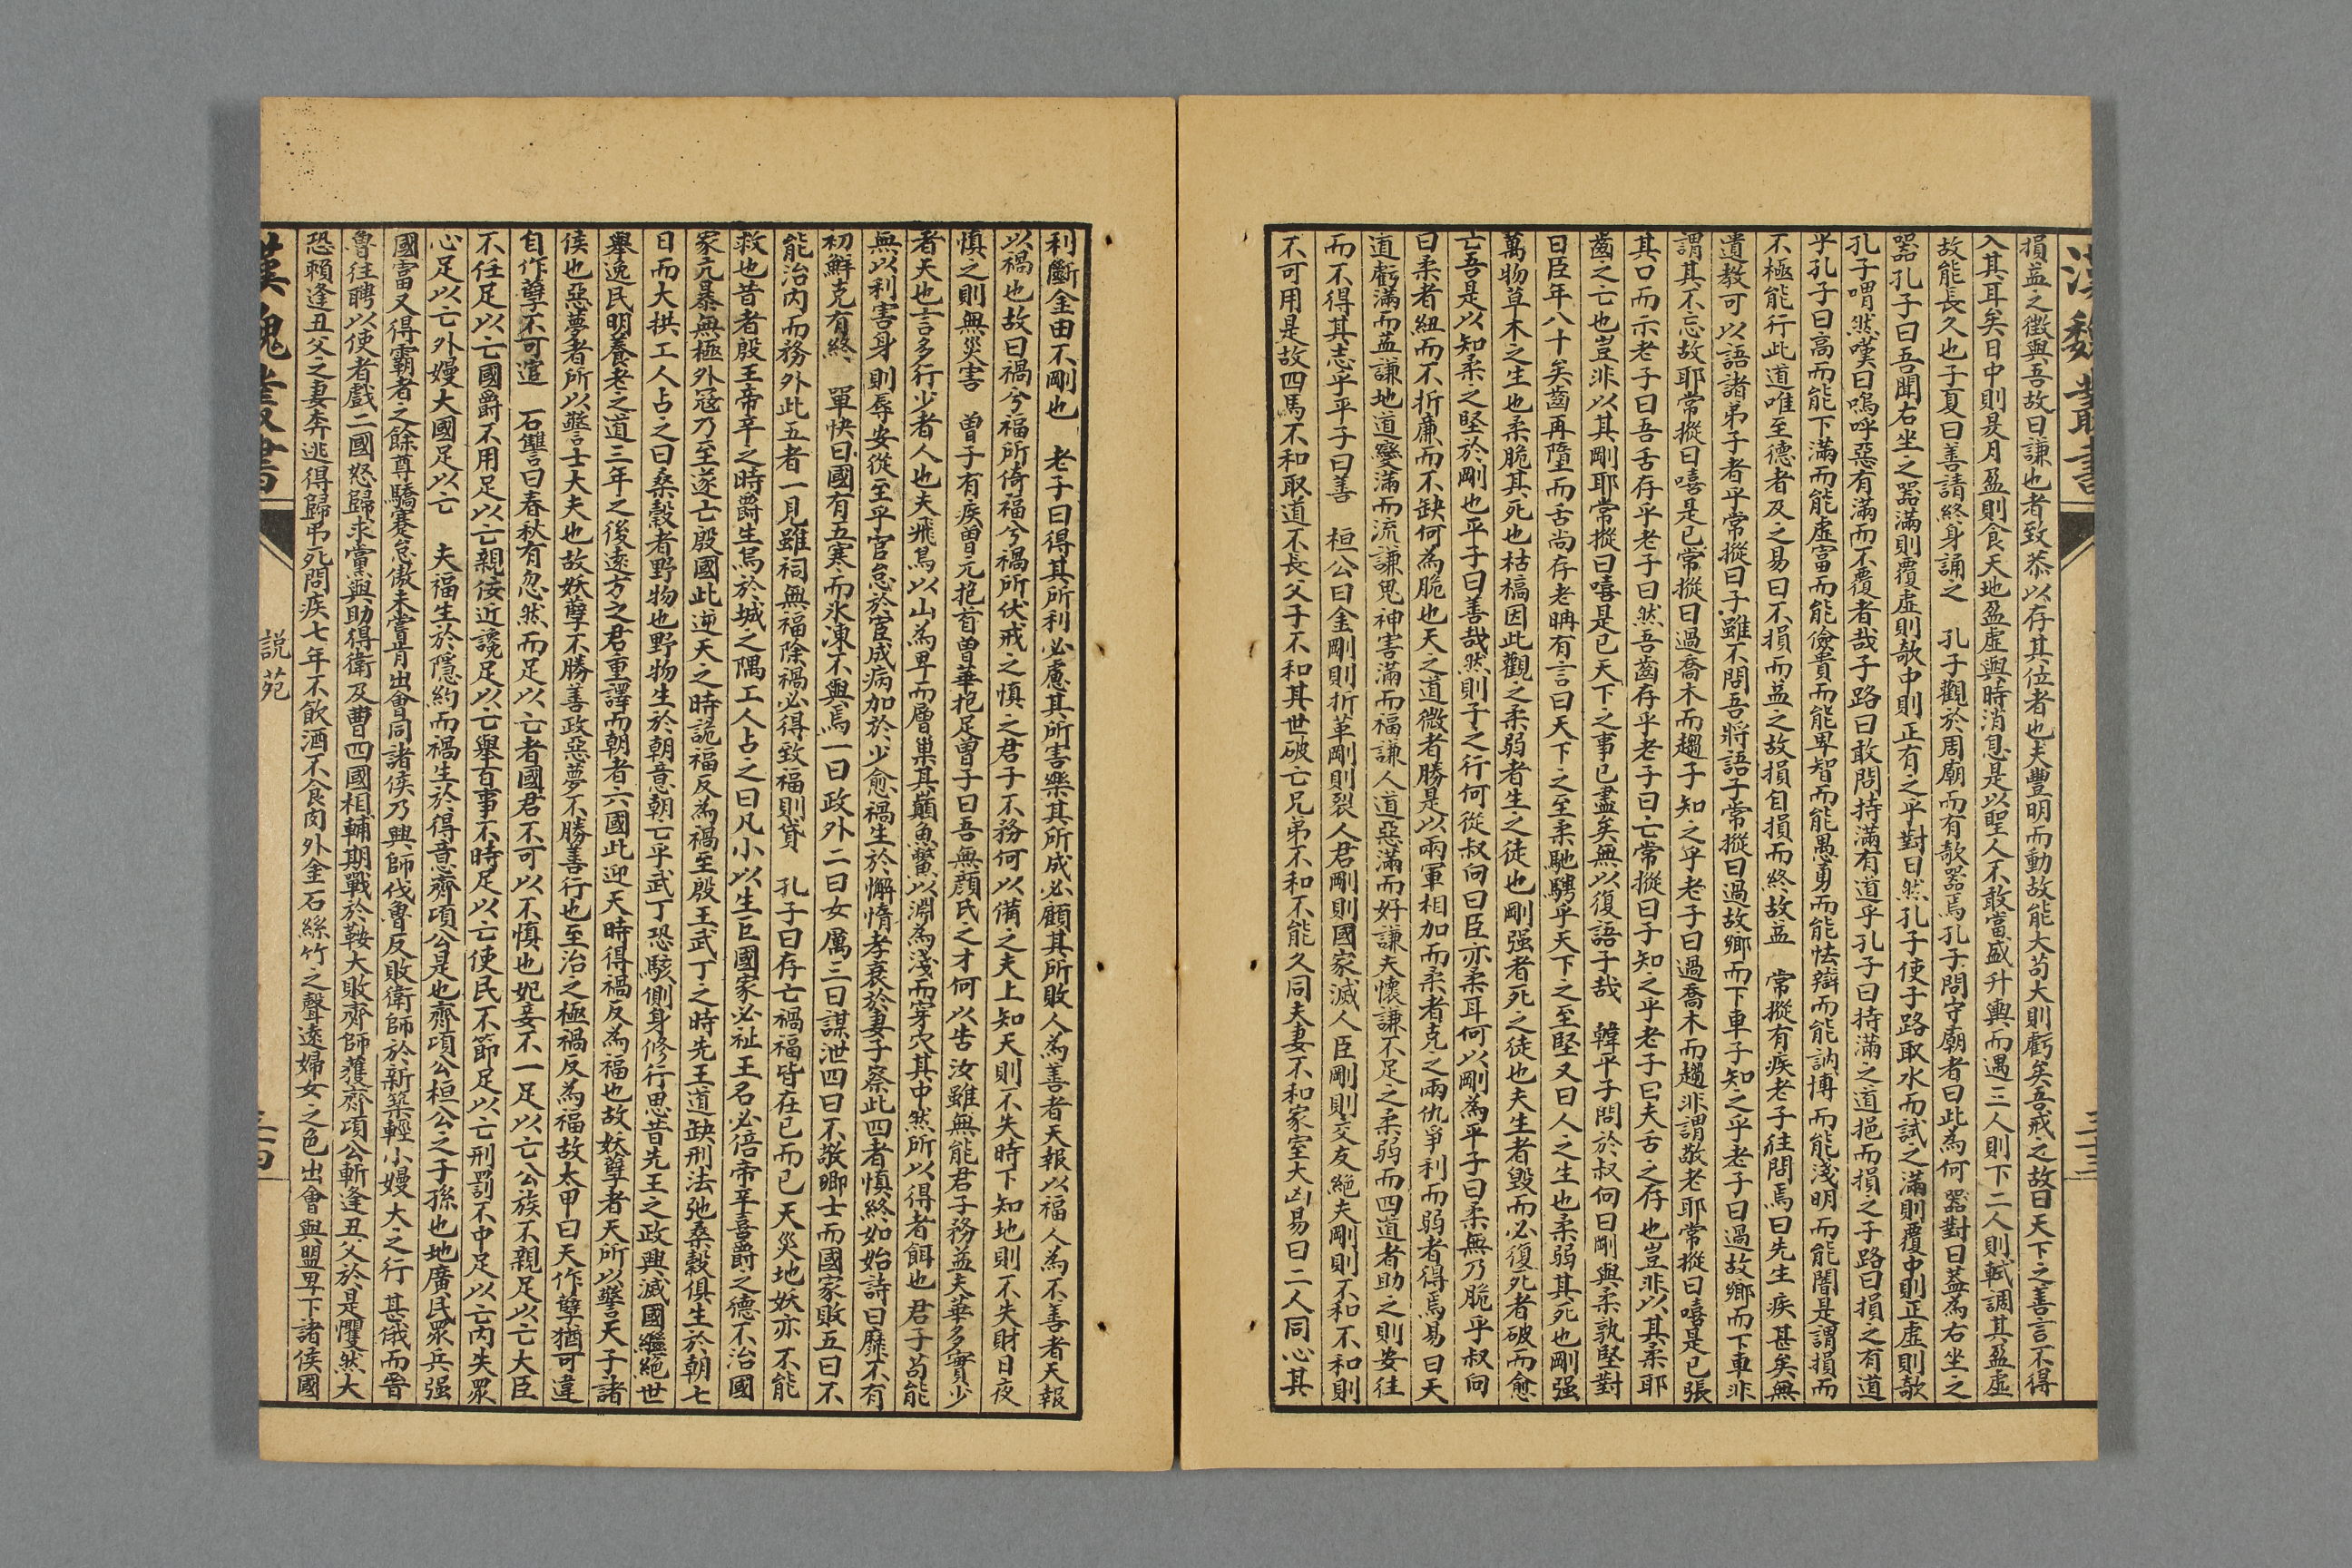 漢魏叢書
三十三
損益之徵與吾故曰謙也者致恭以存其位者也夫豐明而動故能大苟大則虧矣吾戒之故曰天下之善言不得
入其耳矣日中則昃月盈則食天地盈虛與時消息是以聖人不敢當盛升輿而遇三人則下二人則軾調其盈虛
故能長久也子夏曰善請終身誦之　孔子觀於周廟而有欹器焉孔子問守廟者曰此為何器對曰蓋為右坐之
器孔子曰吾聞右坐之器滿則覆虛則欹中則正有之乎對曰然孔子使子路取水而試之滿則覆中則正虛則欹
孔子喟然嘆曰嗚呼惡有滿而不覆者哉子路曰敢問持滿有道乎孔子曰持滿之道挹而損之子路曰損之有道
乎孔子曰高而能下滿而能虛富而能儉貴而能卑智而能愚勇而能怯辯而能訥博而能淺明而能闇是謂損而
不極能行此道唯至德者及之易曰不損而益之故損自損而終故益　常摐有疾老子往問焉曰先生疾甚矣無
遺教可以語諸弟子者乎常摐曰子雖不問吾將語子常摐曰過故鄉而下車子知之乎老子曰過故鄉而下車非
謂其不忘故耶常摐曰嘻是已常摐曰過喬木而趨子知之乎老子曰過喬木而趨非謂敬老耶常摐曰嘻是已張
其口而示老子曰吾舌存乎老子曰然吾齒存乎老子曰亡常摐曰子知之乎老子曰夫舌之存也豈非以其柔耶
齒之亡也豈非以其剛耶常摐曰嘻是已天下之事已盡矣無以復語子哉　韓平子問於叔向曰剛與柔孰堅對
曰臣年八十矣齒再墮而舌尚存老聃有言曰天下之至柔馳騁乎天下之至堅又曰人之生也柔弱其死也剛强
萬物草木之生也柔脆其死也枯槁因此觀之柔弱者生之徒也剛强者死之徒也夫生者毀而必復死者破而愈
亡吾是以知柔之堅於剛也平子曰善哉然則子之行何從叔向曰臣亦柔耳何以剛為平子曰柔無乃脆乎叔向
曰柔者紐而不折廉而不缺何為脆也天之道微者勝是以兩軍相加而柔者克之兩仇爭利而弱者得焉易曰天
道虧滿而益謙地道變滿而流謙鬼神害滿而福謙人道惡滿而好謙夫懷謙不足之柔弱而四道者助之則安往
而不得其志乎平子曰善　桓公曰金剛則折革剛則裂人君剛則國家滅人臣剛則交友絕夫剛則不和不和則
不可用是故四馬不和取道不長父子不和其世破亡兄弟不和不能久同夫妻不和家室大凶易曰二人同心其
利斷金由不剛也　老子曰得其所利必慮其所害樂其所成必顧其所敗人為善者天報以福人為不善者天報
以禍也故曰禍兮福所倚福兮禍所伏戒之慎之君子不務何以備之夫上知天則不失時下知地則不失財日夜
慎之則無災害　曾子有疾曾元抱首曾華抱足曾子曰吾無顏氏之才何以告汝雖無能君子務益夫華多實少
者天也言多行少者人也夫飛鳥以山為卑而層巢其巔魚鱉以淵為淺而穿穴其中然所以得者餌也君子苟能
無以利害身則辱安從至乎官怠於宦成病加於少愈禍生於懈惰孝衰於妻子察此四者慎終如始詩曰靡不有
初鮮克有終　單快曰國有五寒而氷凍不與焉一曰政外二曰女厲三曰謀泄四曰不敬卿士而國家敗五曰不
能治內而務外此五者一見雖祠無福除禍必得致福則貸　孔子曰存亡禍福皆在己而已天災地妖亦不能
救也昔者殷王帝辛之時爵生烏於城之隅工人占之曰凡小以生巨國家必祉王名必倍帝辛喜爵之德不治國
家亢暴無極外寇乃至遂亡殷國此逆天之時詭福反為禍至殷王武丁之時先王道缺刑法弛桑穀俱生於朝七
日而大拱工人占之曰桑穀者野物也野物生於朝意朝亡乎武丁恐駭側身修行思昔先王之政興滅國繼絕世
舉逸民明養老之道三年之後遠方之君重譯而朝者六國此迎天時得禍反為福也故妖孽者天所以警天子諸
侯也惡夢者所以警士大夫也故妖孽不勝善政惡夢不勝善行也至治之極禍反為福故太甲曰天作孽猶可違
自作孽不可逭　石讐曰春秋有忽然而足以亡者國君不可以不慎也妃妾不一足以亡公族不親足以亡大臣
不任足以亡國爵不用足以亡親佞近讒足以亡舉百事不時足以亡使民不節足以亡刑罰不中足以亡內失眾
心足以亡外嫚大國足以亡　夫福生於隱約而禍生於得意齊頃公是也齊頃公桓公之子孫也地廣民眾兵强
國富又得霸者之餘尊驕蹇怠傲未嘗肯出會同諸侯乃興師伐魯反敗衛師於新築輕小嫚大之行甚俄而晉
魯往聘以使者戲二國怒歸求黨與助得衛及曹四國相輔期戰於鞍大敗齊師獲齊頃公斬逢丑父於是懼然大
恐賴逢丑父之妻奔逃得歸弔死問疾七年不飲酒不食肉外金石絲竹之聲遠婦女之色出會與盟卑下諸侯國
漢魏叢書
說苑
三十四